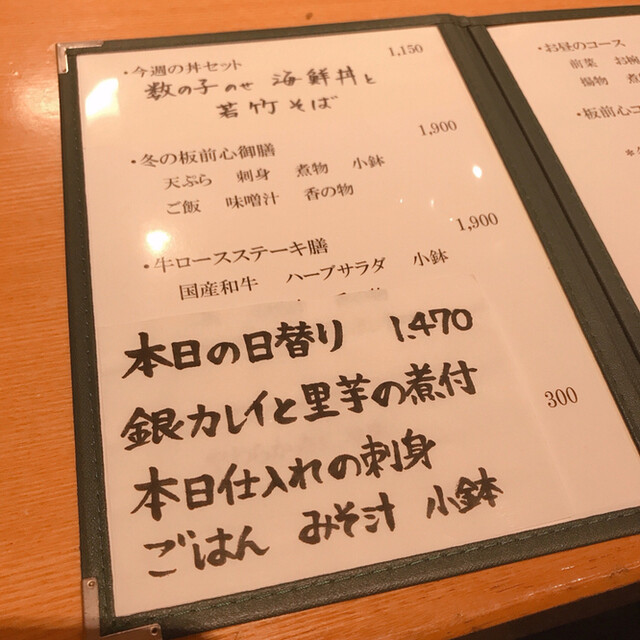 ・今週の丼セット 1,150
数の子のせ 海鮮丼と
若竹そば
・冬の板前心御膳 1,900
天ぷら 刺身 煮物 小鉢
ご飯 味噌汁 香の物
・牛ロースステーキ膳 1,900
国産和牛 ハーブサラダ 小鉢
本日の日替り 1.470
銀カレイと里芋の煮付
本日仕入れの刺身
ごはん みそ汁 小鉢
300
・お昼のコース
前菜 お椀
揚物 煮
・板前心コ